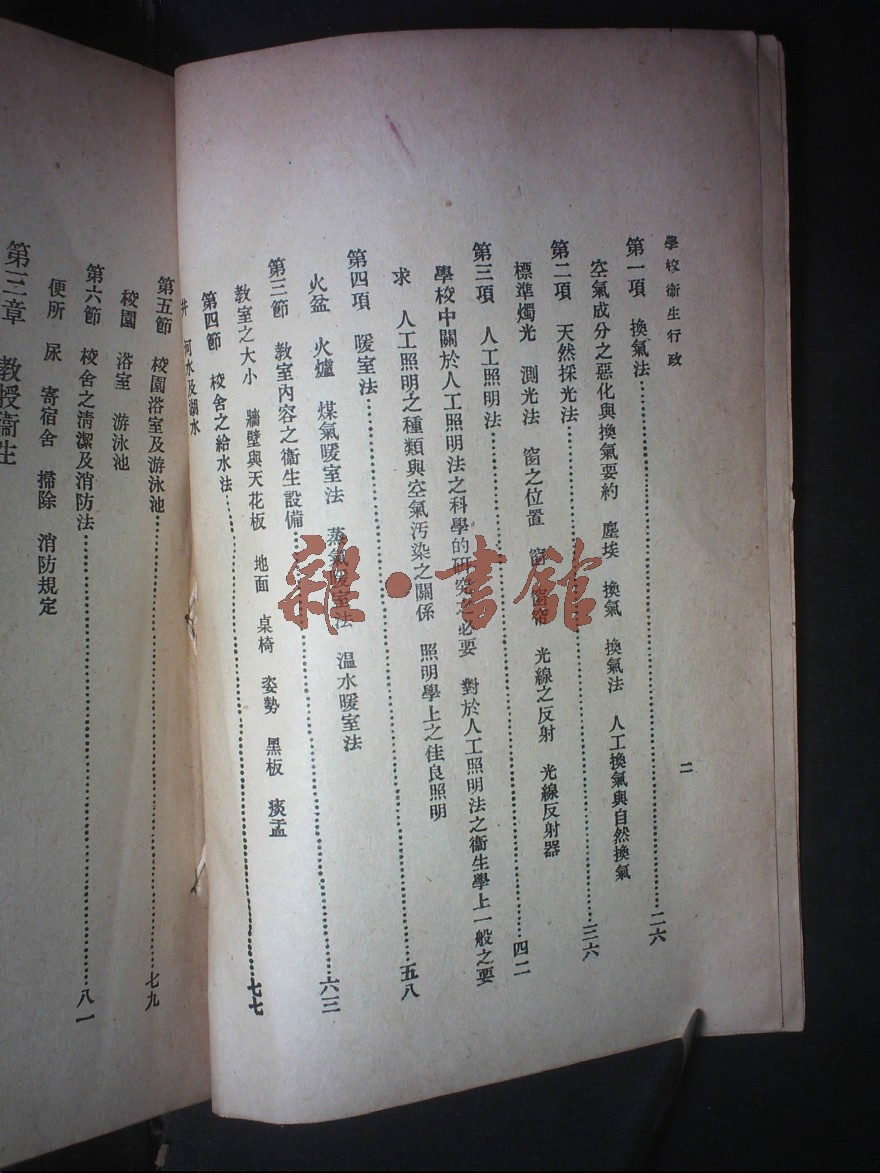 學校衞生行政
二
第一項　換氣法……二六
空氣成分之惡化與換氣要約　塵埃　換氣　換氣法　人工換氣與自然換氣
第二項　天然採光法……三六
標準燭光　測光法　窗之位置　窗　窗帘　光線之反射　光線反射器
第三項　人工照明法……四二
學校中關於人工照明法之科學的研究之必要　對於人工照明法之衞生學上一般之要
求　人工照明之種類與空氣汚染之關係　照明學上之佳良照明
第四項　暖室法……五八
火盆　火爐　煤氣暖室法　蒸氣暖室法　溫水暖室法
第三節　教室內容之衞生設備……六三
教室之大小　牆壁與天花板　地面　桌椅　姿勢　黑板　痰盂
第四節　校舍之給水法……七七
井　河水及湖水
第五節　校園浴室及游泳池……七九
校園　浴室　游泳池
第六節　校舍之淸潔及消防法……八一
便所　尿　寄宿舍　掃除　消防規定
第三章　教授衞生
雜·書館